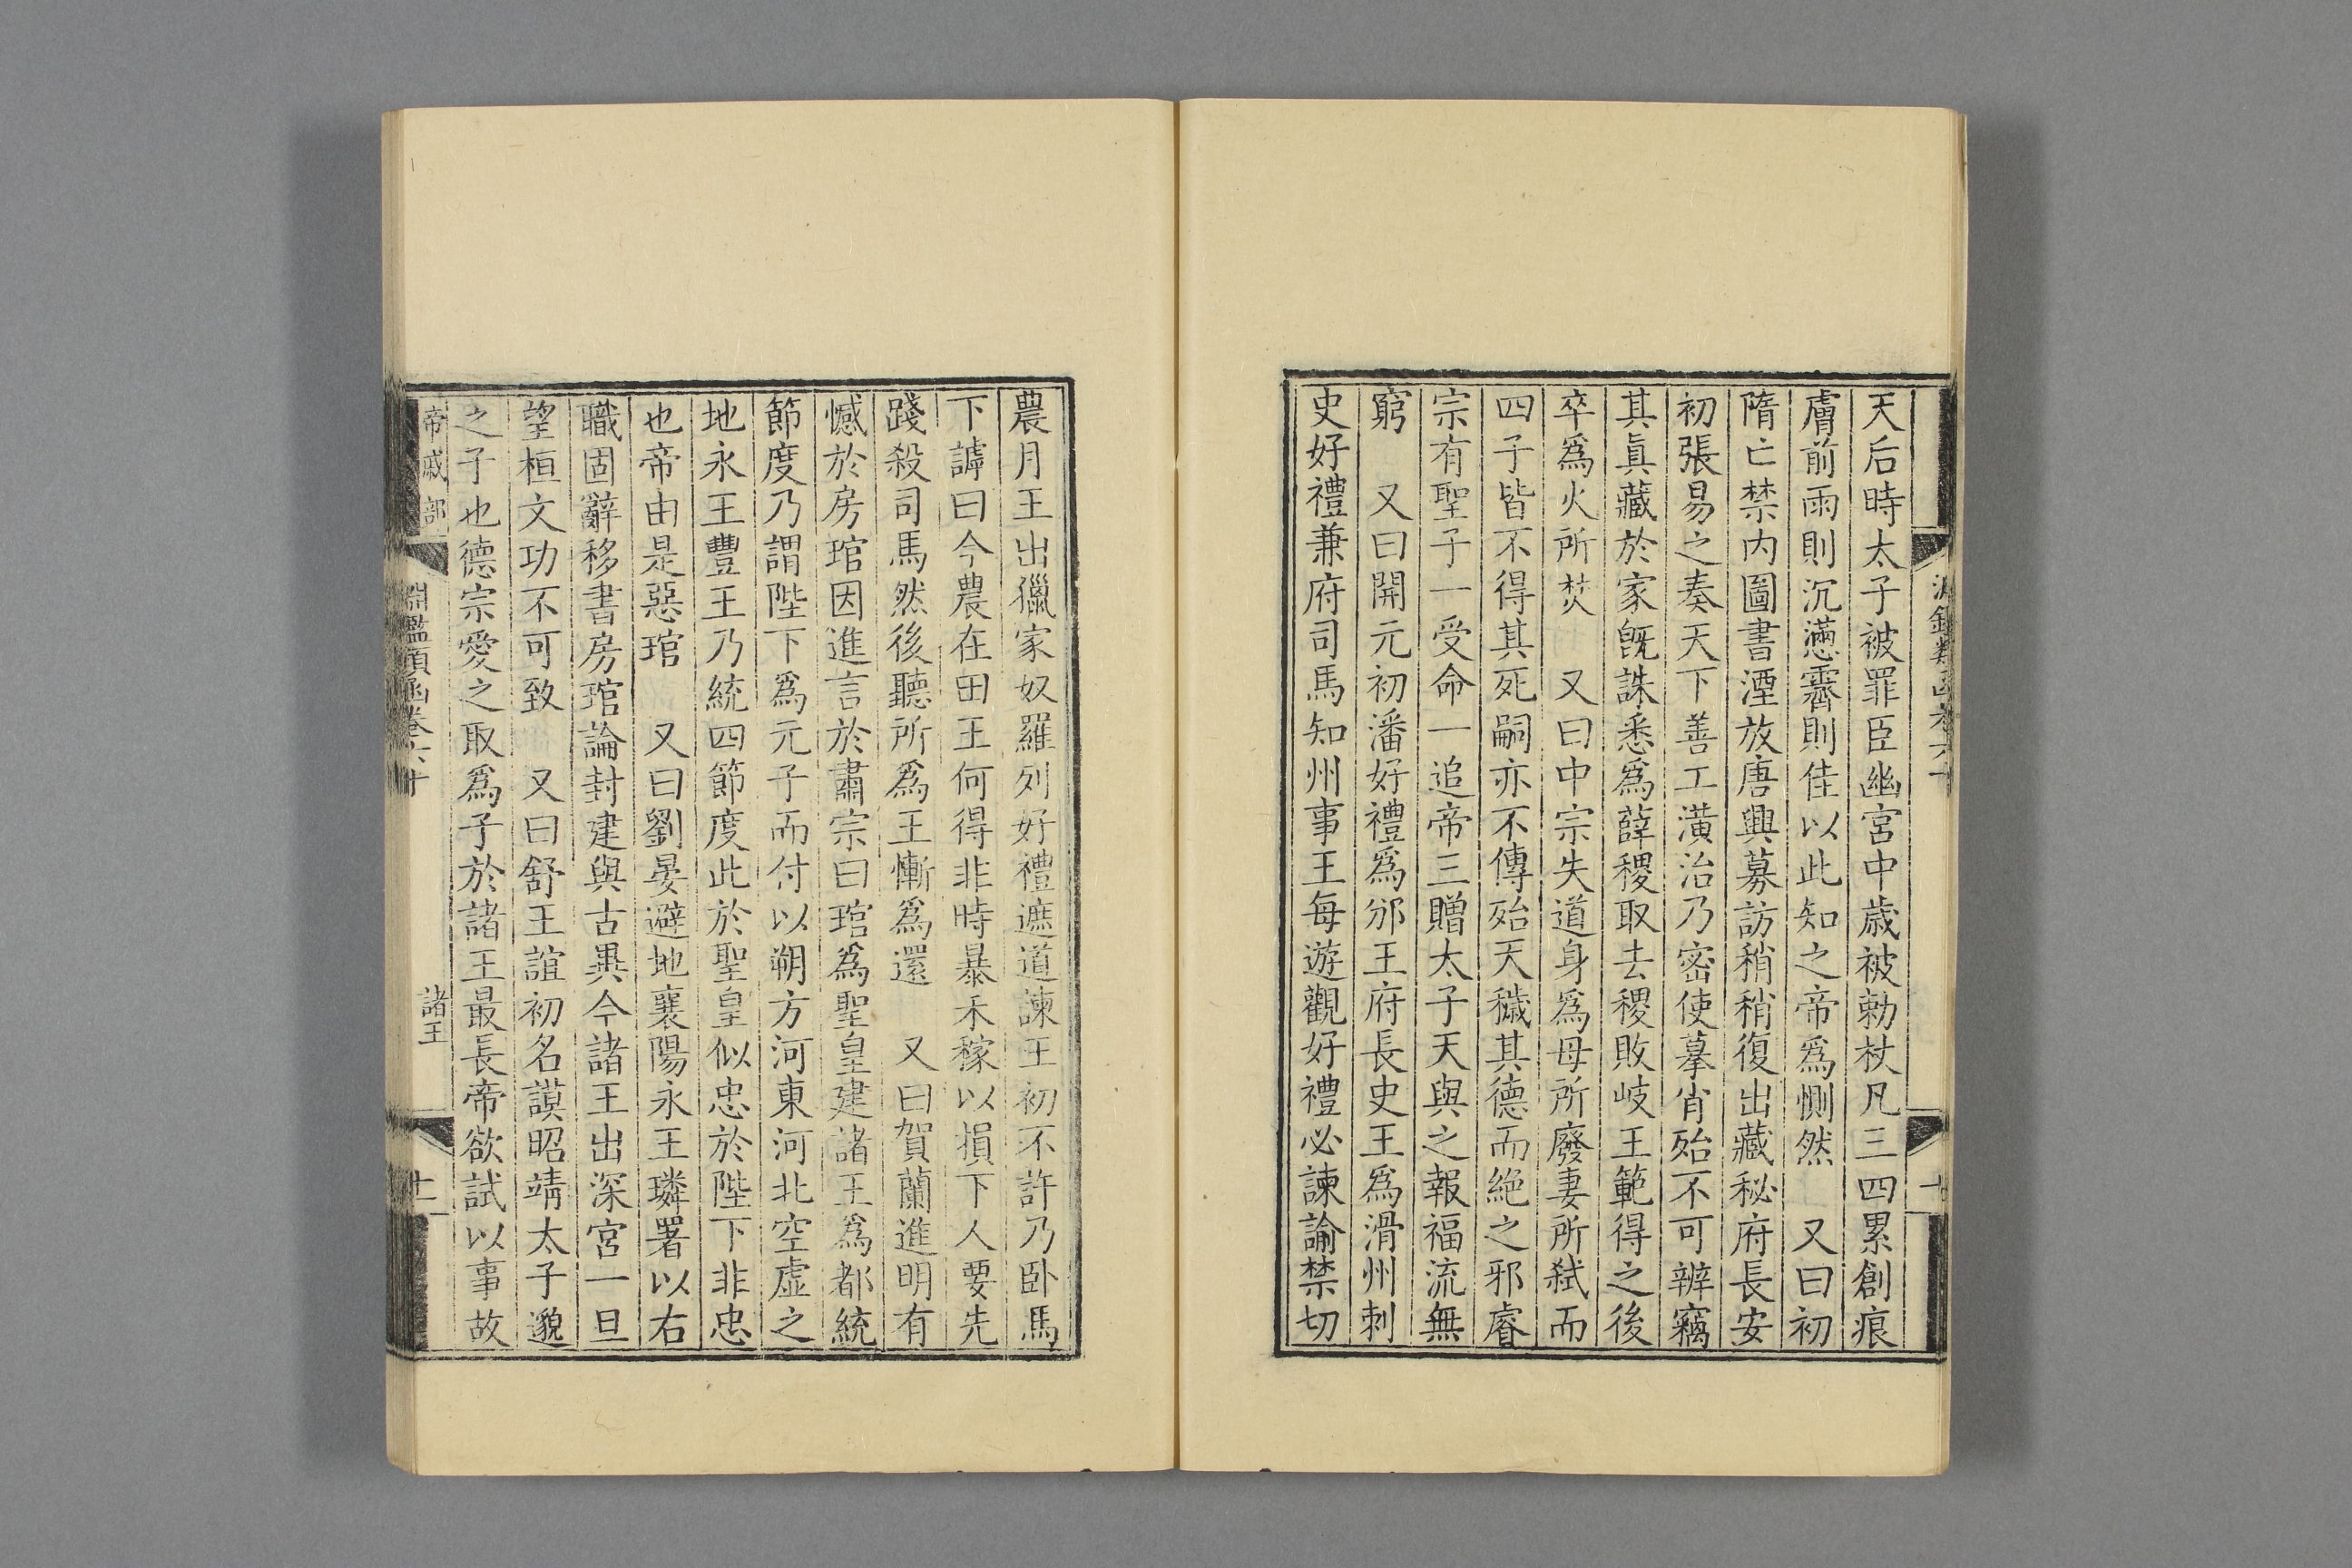 天后時太子被罪臣幽宮中歲被勅杖凡三四累創痕
膚前雨則沉懣霽則佳以此知之帝爲惻然　又曰初
隋亡禁內圖書湮放唐興募訪稍稍復出藏秘府長安
初張易之奏天下善工潢治乃密使摹肖殆不可辨竊
其眞藏於家旣誅悉爲薛稷取去稷敗岐王範得之後
卒爲火所焚　又曰中宗失道身爲母所廢妻所弒而
四子皆不得其死嗣亦不傳殆天穢其德而絕之邪睿
宗有聖子一受命一追帝三贈太子天與之報福流無
窮　又曰開元初潘好禮爲邠王府長史王爲滑州刺
史好禮兼府司馬知州事王每遊觀好禮必諫論禁切
農月王出獵家奴羅列好禮遮道諫王初不許乃臥馬
下謼曰今農在田王何得非時暴禾稼以損下人要先
踐殺司馬然後聽所爲王慚爲還　又曰賀蘭進明有
憾於房琯因進言於肅宗曰琯爲聖皇建諸王爲都統
節度乃謂陛下爲元子而付以朔方河東河北空虛之
地永王豐王乃統四節度此於聖皇似忠於陛下非忠
也帝由是惡琯　又曰劉晏避地襄陽永王璘署以右
職固辭移書房琯論封建與古異今諸王出深宮一旦
望桓文功不可致　又曰舒王誼初名謨昭靖太子邈
之子也德宗愛之取爲子於諸王最長帝欲試以事故
帝戚部
淵鑑類函卷六十
諸王
十一